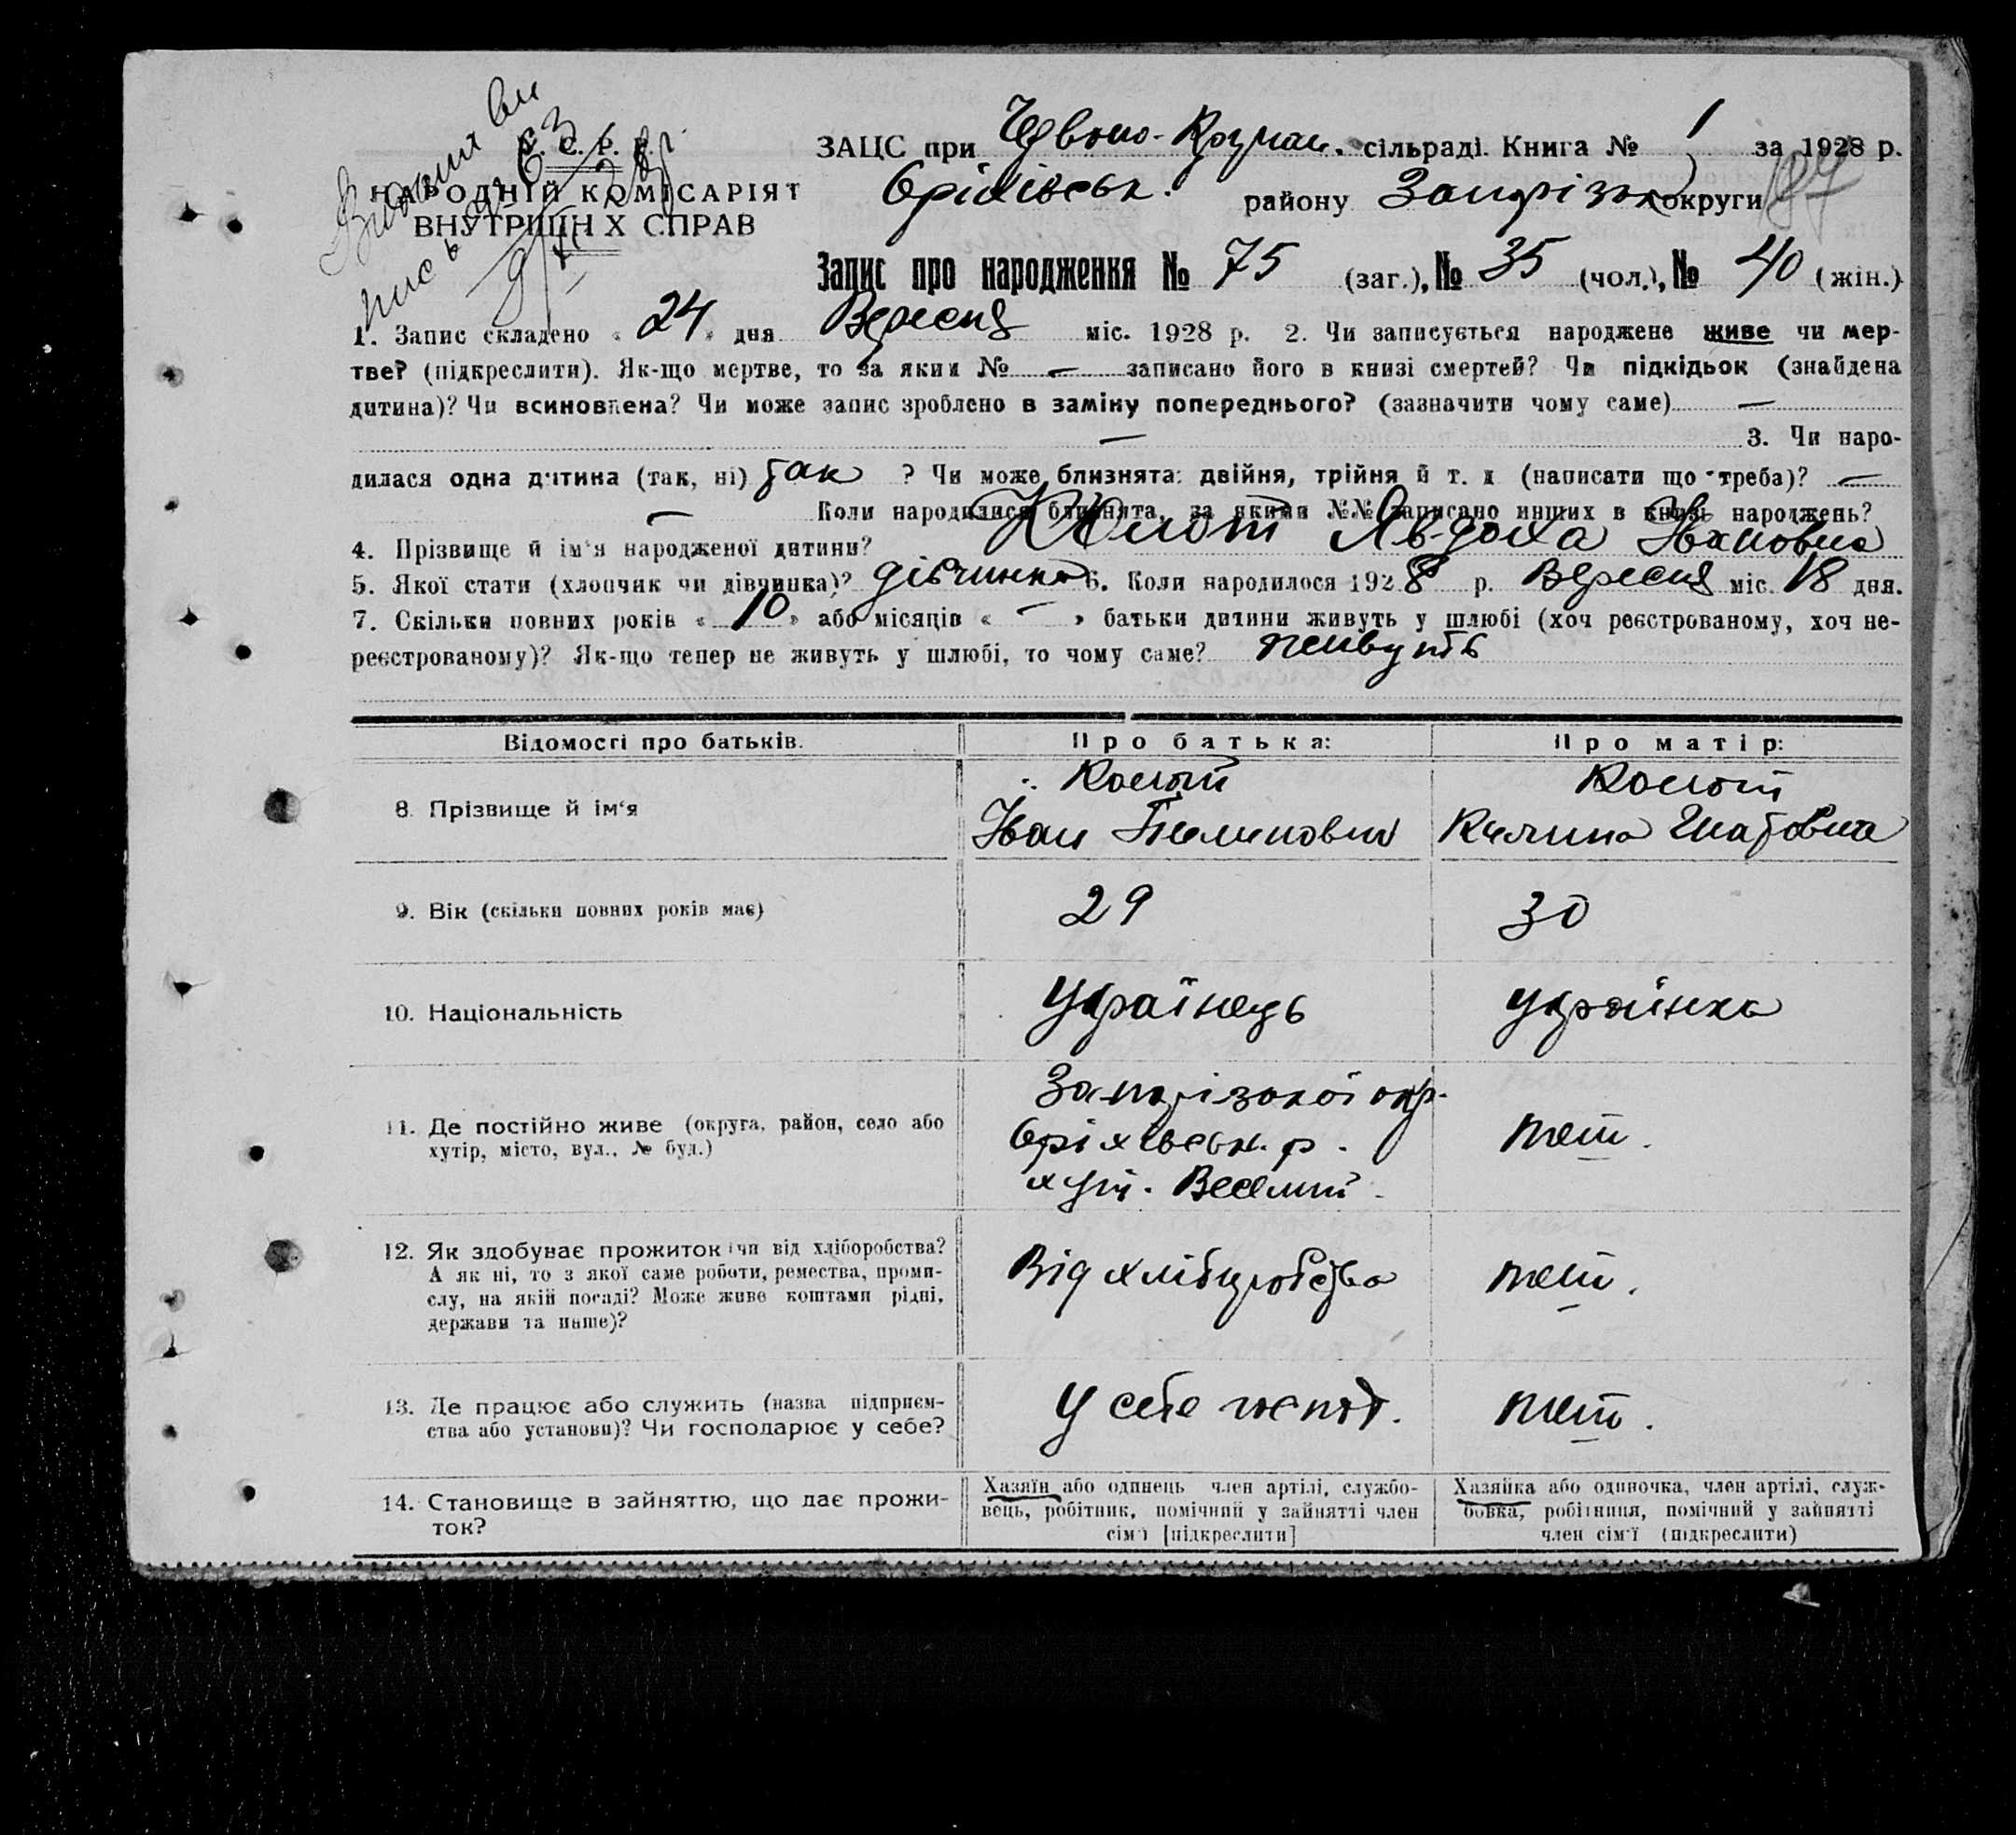 У. С. Р. Р.
НАРОДНІЙ КОМІСАРІЯТ
ВНУТРІШНІХ СПРАВ
ЗАЦС при Червоно- сільраді. Книга № 1 за 1928 р.
Оріхівськ. району Запорізьк округи
Запис про народження № 75 (заг.), № 35 (чол.), № 40 (жін.)
1. Запис складено « 24 » дня Вересня міс. 1928 р. 2. Чи записується народжене живе чи мер-
тве? (підкреслити). Як-що мертве, то за яким № — записано його в книзі смертей? Чи підкідьок (знайдена
дитина)? Чи всиновлена? Чи може запис зроблено в заміну попереднього? (зазначити чому саме) —
— 3. Чи наро-
дилася одна дитина (так, ні) так ? Чи може близнята: двійня, трійня й т. д (написати що треба)? —
— Коли народилися близнята, за якими №№ записано инших в книзі народжень?
4. Прізвище й ім'я народженої дитини? Явдоха Івановна
5. Якої стати (хлопчик чи дівчинка)? дівчинка 6. Коли народилося 1928 р. Вересня міс. 18 дня.
7. Скільки повних років « 10 » або місяців « — » батьки дитини живуть у шлюбі (хоч реєстрованому, хоч не-
реєстрованому)? Як-що тепер не живуть у шлюбі, то чому саме? живуть
Відомості про батьків. Про батька: Про матір:
8. Прізвище й ім'я
Іван Килина
9. Вік (скільки повних років має) 29 30
10. Національність Українець Українка
11. Де постійно живе (округа, район, село або
хутір, місто, вул., № буд.)
Запорізької окр.
Оріхівськ. р.
хут. Веселий.
теж.
12. Як здобуває прожиток (чи від хліборобства?
А як ні, то з якої саме роботи, ремества, проми-
слу, на якій посаді? Може живе коштами рідні,
держави та инше)?
Від хліборобства теж.
13. Де працює або служить (назва підприєм-
ства або установи)? Чи господарює у себе?
У себе господ. теж.
14. Становище в зайняттю, що дає прожи-
ток?
Хазяїн або одинець член артілі, службо-
вець, робітник, помічний у зайнятті член
сім'ї [підкреслити]
Хазяйка або одиночка, член артілі, служ-
бовка, робітниця, помічний у зайнятті
член сім'ї (підкреслити)